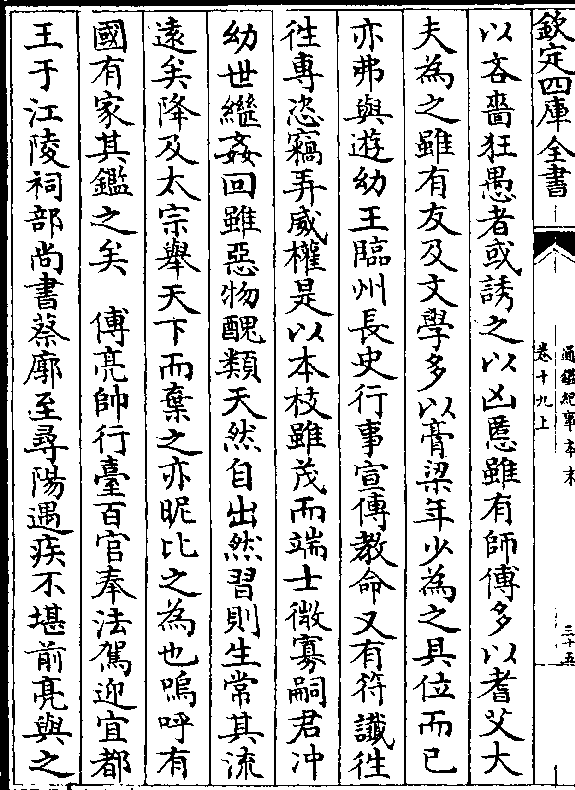 欽定四庫全書
通鑑紀事本末
卷十九上
三十五
以吝嗇狂愚者或誘之以凶慝雖有師傅多以耆艾大
夫為之雖有友及文學多以膏粱年少為之具位而已
亦弗與遊幼王臨州長史行事宣傳教命又有符讖徃
徃專恣竊弄威權是以本枝雖茂而端士㣲寡嗣君冲
幼世繼姦回雖惡物醜類天然自出然習則生常其流
逺矣降及太宗舉天下而棄之亦昵比之為也嗚呼有
國有家其鑑之矣　傅亮帥行臺百官奉法駕迎宜都
王于江陵祠部尚書蔡廓至尋陽遇疾不堪前亮與之